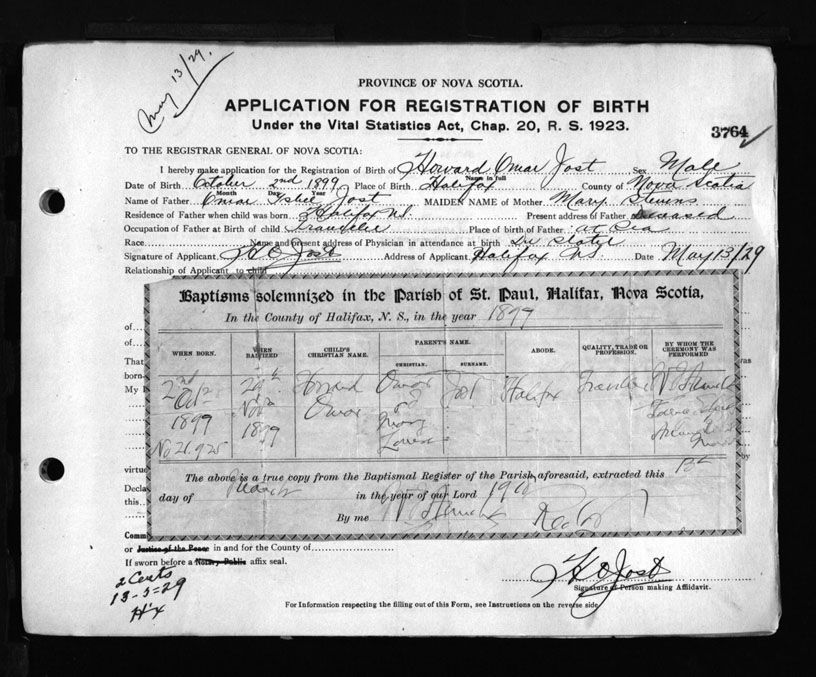 May 13/29.
PROVINCE OF NOVA SCOTIA.
APPLICATION FOR REGISTRATION OF BIRTH
Under the Vital Statistics Act, Chap. 20, R. S. 1923.
3764
TO THE REGISTRAR GENERAL OF NOVA SCOTIA:
I hereby make application for the Registration of Birth of Howard Omar Jost Sex Male
Name in full
Date of Birth October 2nd 1899 Place of Birth Halifax County of Nova Scotia
Month Day Year
Name of Father Omar Jost MAIDEN NAME of Mother Mary Stevens
Residence of Father when child was born Halifax N.S. Present address of Father Deceased
Occupation of Father at Birth of child Traveller Place of birth of Father at Sea
Race Name and present address of Physician in attendance at birth Dr Slater
Signature of Applicant H O Jost Address of Applicant Halifax NS Date May 13/29
Relationship of Applicant to child
Baptisms solemnized in the Parish of St. Paul, Halifax, Nova Scotia,
In the County of Halifax, N. S., in the year 1899
WHEN BORN. WHEN BAPTIZED CHILD'S CHRISTIAN NAME. PARENT'S NAME. CHRISTIAN. SURNAME. ABODE. QUALITY, TRADE OR PROFESSION. BY WHOM THE CEREMONY WAS PERFORMED
2nd 29th Howard Omar Jost Halifax Traveller
Oct Nov Omar &
1899 1899 Mary
of
of
That
born
My
was
by
virtue
Decla
this
The above is a true copy from the Baptismal Register of the Parish aforesaid, extracted this 13th
day of March in the year of our Lord
By me Rector
Comm
or Justice of the Peace in and for the County of
If sworn before a Notary Public affix seal.
2 Cents
13-5=29
H'x
H O Jost
Signature of Person making Affidavit.
For Information respecting the filling out of this Form, see Instructions on the reverse side